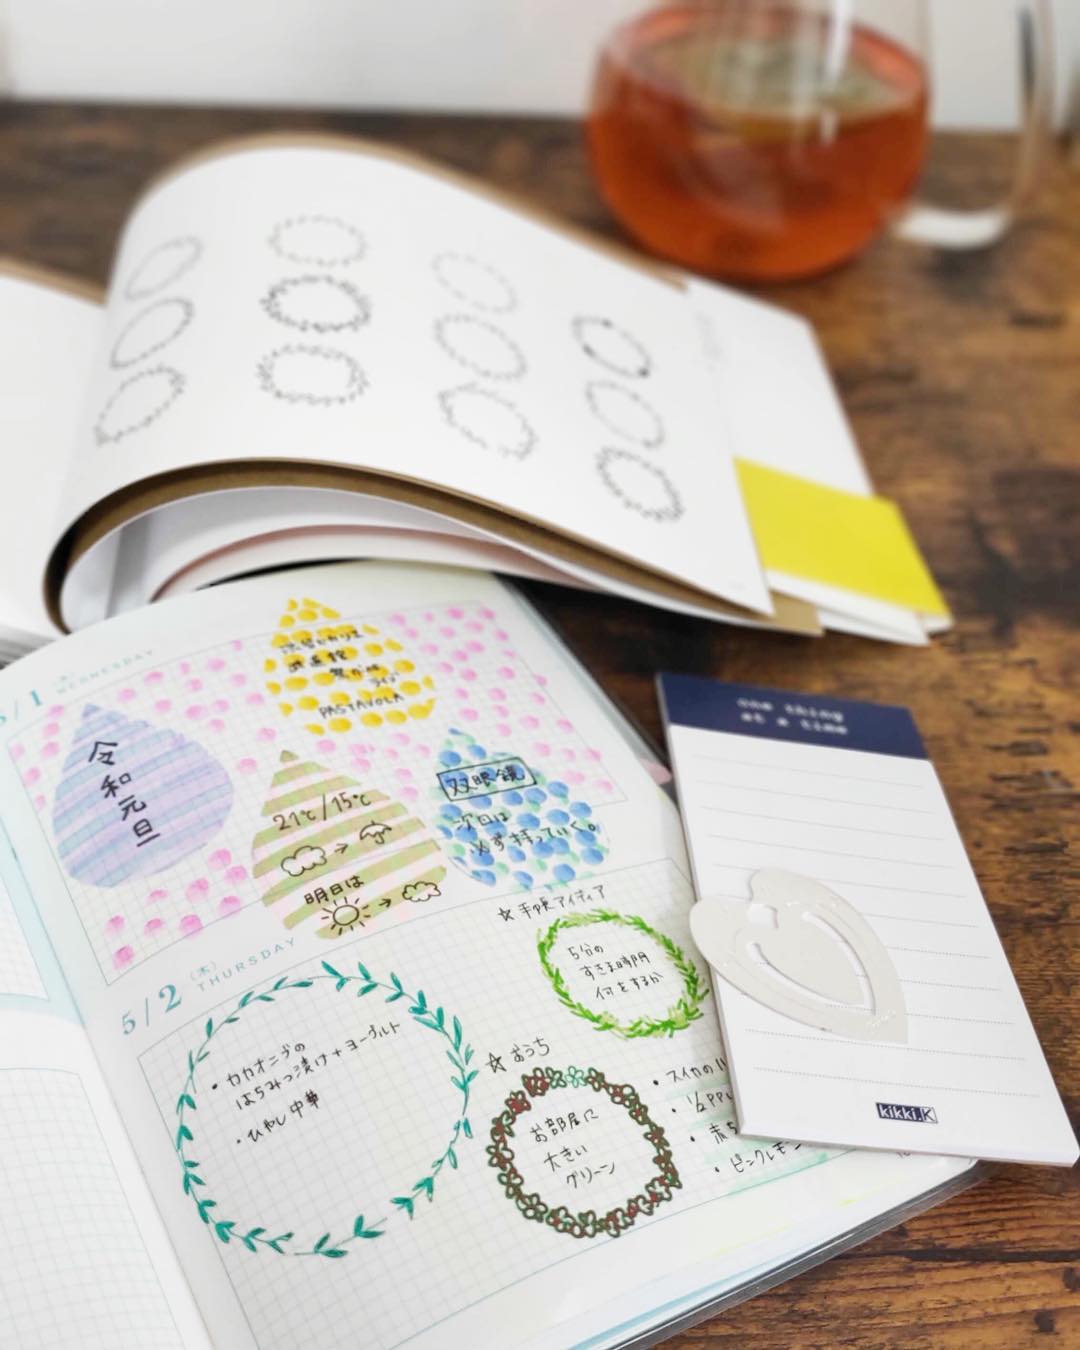 5/1
WEDNESDAY
PASTAVOLA
令和元旦
21℃/15℃
明日は
双眼鏡
次日は
必ず持っていく。
5/2
(木)
THURSDAY
・カカオニブの
はちみつ漬け+ヨーグルト
・ひやし中華
☆手帳アイディア
5分の
すきま時間
何をするか
☆おうち
お部屋に
大きい
グリーン
・スイカの
・1/2 PPL
・赤ち
・ピンクレモ
one thing
at a time
kikki.K